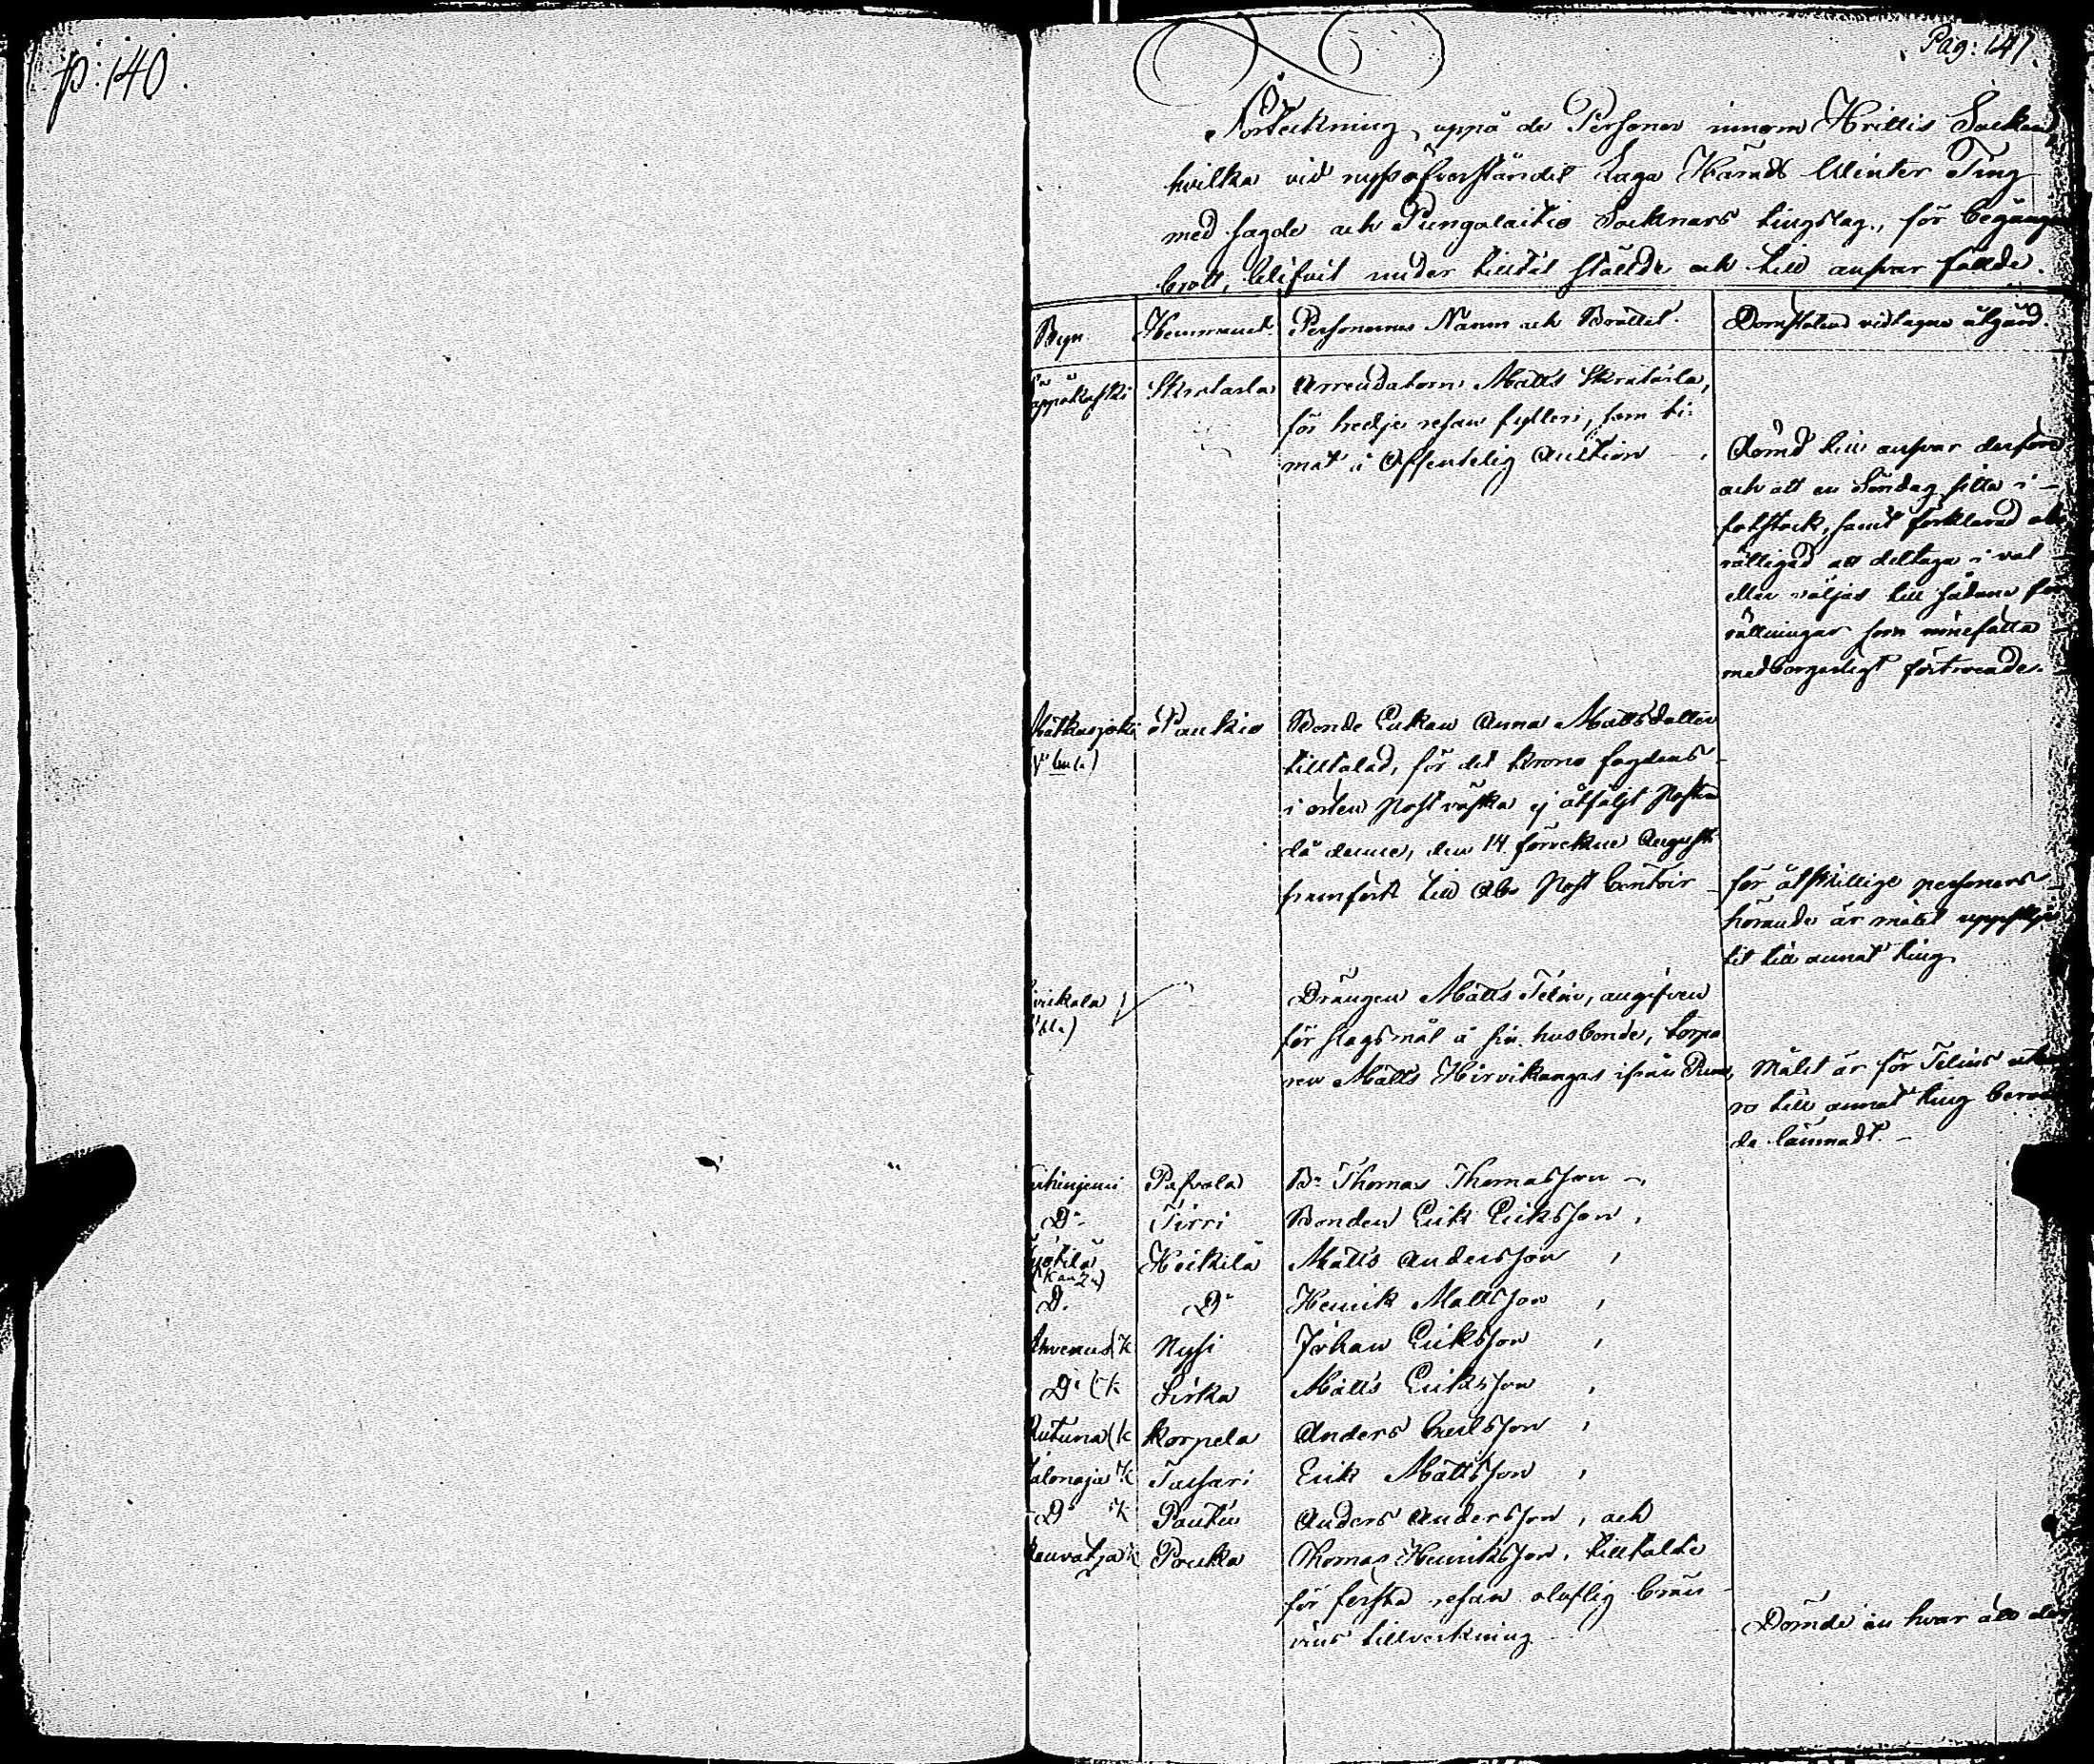 p: 140.
Pag: 141.
Förteckning, uppå de Personer innom Hvittis Socken,
hvilka vid nyss öfverståndit Laga Härads Winter Ting
med sagde och Pungalaitio Socknars tingslag, för begångne
brott, blifvit under tilltal ställde och till ansvar fällde.
Byn. Hemmanet. Personernes Namn och Brottet. Domstolens vidtagne åtgärd.
Arrendatorn Matts
för tredje resan fylleri, som ti:
mat å Offentelig Auction
Dömd till ansvar derföre
och att en Söndag sitta i
fotstock, samt förklarad
rättigad att deltaga i val
eller väljas till sådane för
rättningar som innefatta
medborgerligt förtroende.
Paukio Bonde Enkan Anna Mattsdotter
tilltalad, för det Krono fogdens
i orten Postväska ej åtföljt Posten
då denne, den 14 förvekne Augusti
framförts till Åbo Post Contoir
för åtskillige personers
hörande är målet uppskju
tit till annat ting
Drängen Matts Telin, angifven
för slagsmål å sin husbonde, torpa
ren Matts Hirvikangas ifrån
Målet är för Telins
ro till annat ting beroen
de lämnadt.
Bn Thomas Thomasson
Do Tirri Bonden Erik Eriksson,
Heikilä Matts Andersson,
(Kauzu)
Do Do Henrik Mattsson,
(K Nysi Johan Eriksson,
Do (K Sirka Matts Eriksson,
(K Korpela Anders Carlsson,
K Tassari Erik Mattsson,
Do K Pautin Anders Andersson, och
K Poukka Thomas Henriksson, tilltalte
för första resan oloflig brän
vins tillverkning
Dömde en hvar